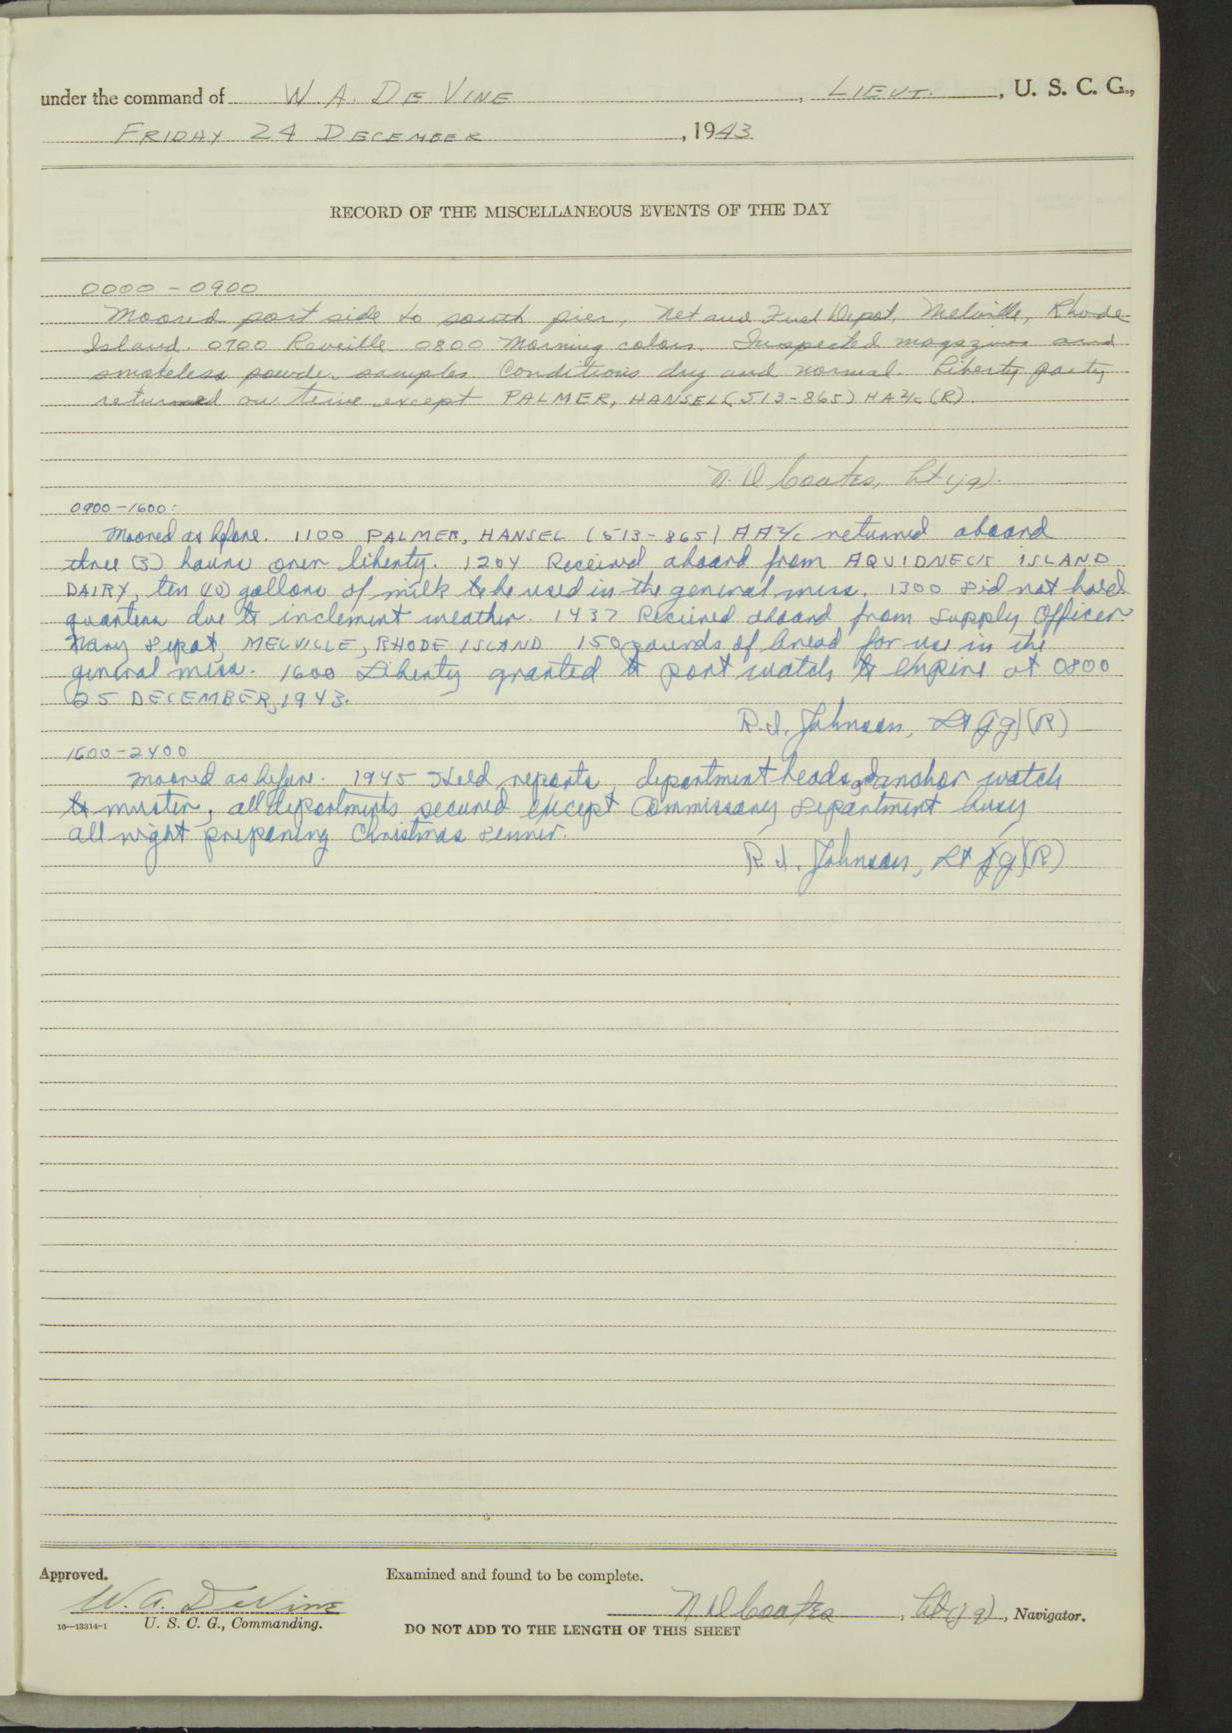 under the command of W. A. DE VINE, LIEUT., U. S. C. G.,
FRIDAY 24 DECEMBER, 1943.
RECORD OF THE MISCELLANEOUS EVENTS OF THE DAY
0000 - 0900
Moored port side to south pier, Net and Fuel Depot, Melville, Rhode
Island. 0700 Reveille 0800 Morning colors. Inspected magazines and
smokeless powder samples. Conditions dry and normal. Liberty party
returned on time except PALMER, HANSEL (513-865) HA2/c (R).
N. D Coates, Lt (jg).
0900-1600:
Moored as before. 1100 PALMER, HANSEL (513-865) HA2/c returned aboard
three (3) hours over liberty. 1204 Received aboard from AQUIDNECK ISLAND
DAIRY, ten (10) gallons of milk to be used in the general mess. 1300 Did not hold
quarters due to inclement weather. 1437 Received aboard from Supply Officer
Navy Depot, MELVILLE, RHODE ISLAND 150 pounds of bread for use in the
general mess. 1600 Liberty granted to port watch to expire at 0800
25 DECEMBER, 1943.
R. I. Johnson, Lt (jg)(R)
1600-2400
Moored as before. 1945 Held reports, department heads, & anchor watch
to muster, all departments secured except Commissary Department busy
all night preparing Christmas Dinner.
R. I. Johnson, Lt (jg)(R)
Approved. Examined and found to be complete.
W. A. DeVine N D Coates, Lt (jg), Navigator.
16—13314-1 U. S. C. G., Commanding.
DO NOT ADD TO THE LENGTH OF THIS SHEET